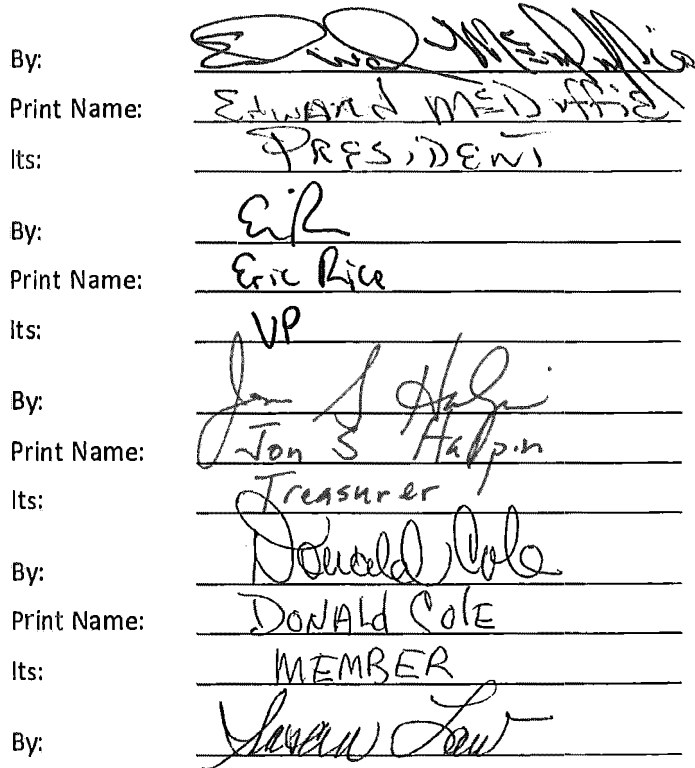 By:
Print Name: EDWARD McDuffie
Its: PRESIDENT
By:
Print Name: Eric Rice
Its: VP
By: Jon S Halpin
Print Name: Jon S Halpin
Its: Treasurer
By: Donald Cole
Print Name: DONALd COlE
Its: MEMBER
By: